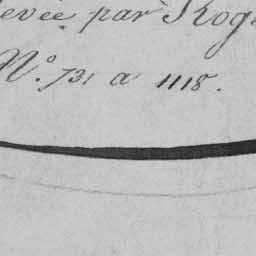 levée par Rog
N.º 731 a 1118.